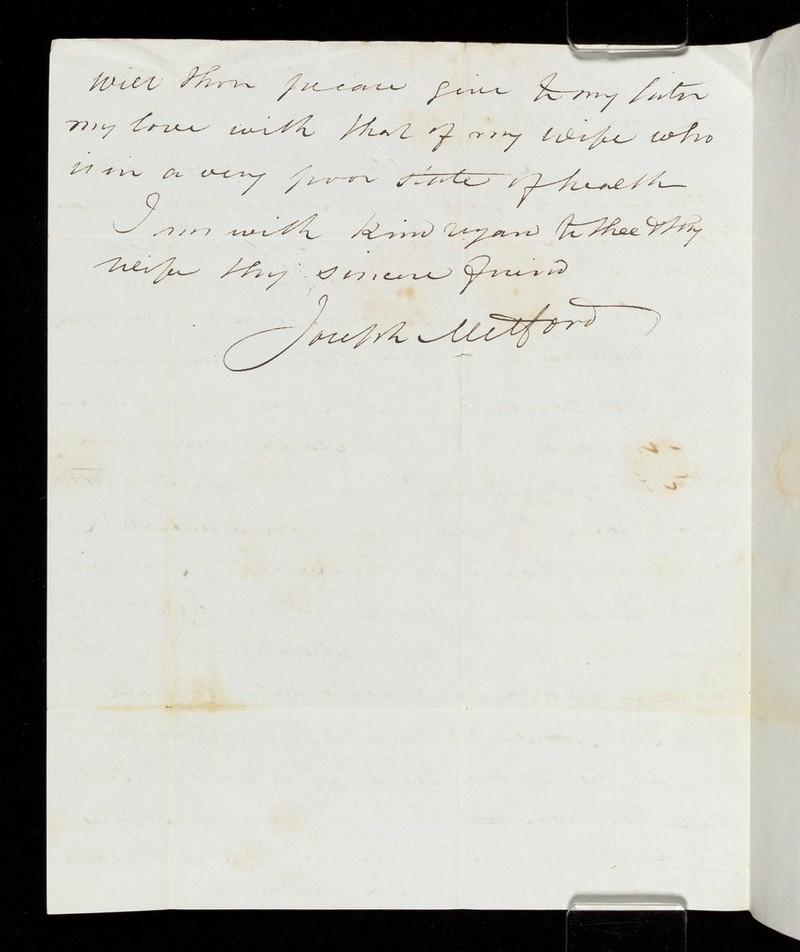 Will thou please give to my sister
my love with that of my wife who
is in a very poor state of health
I am with kind regard to thee & thy
wife thy sincere friend
Joseph Metford